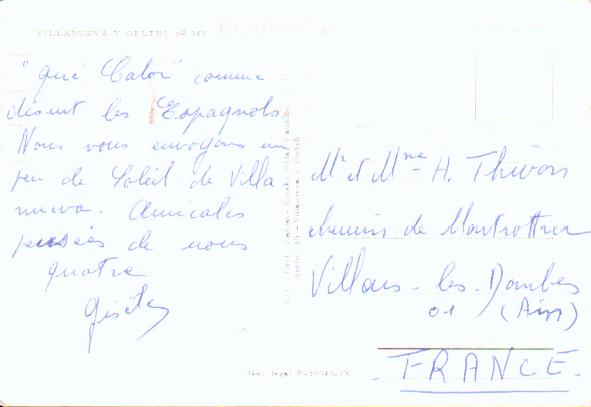 VILLANUEVA Y GELTRU nº 343
"Qué Calor" comme
disent les Espagnols
Nous vous envoyons un
peu de Soleil de Villa
nueva. Amicales
pensées de nous
quatre
Mr et Mme H. Thivon
chemin de
Villars-les-Dombes
01 (Ain)
FRANCE